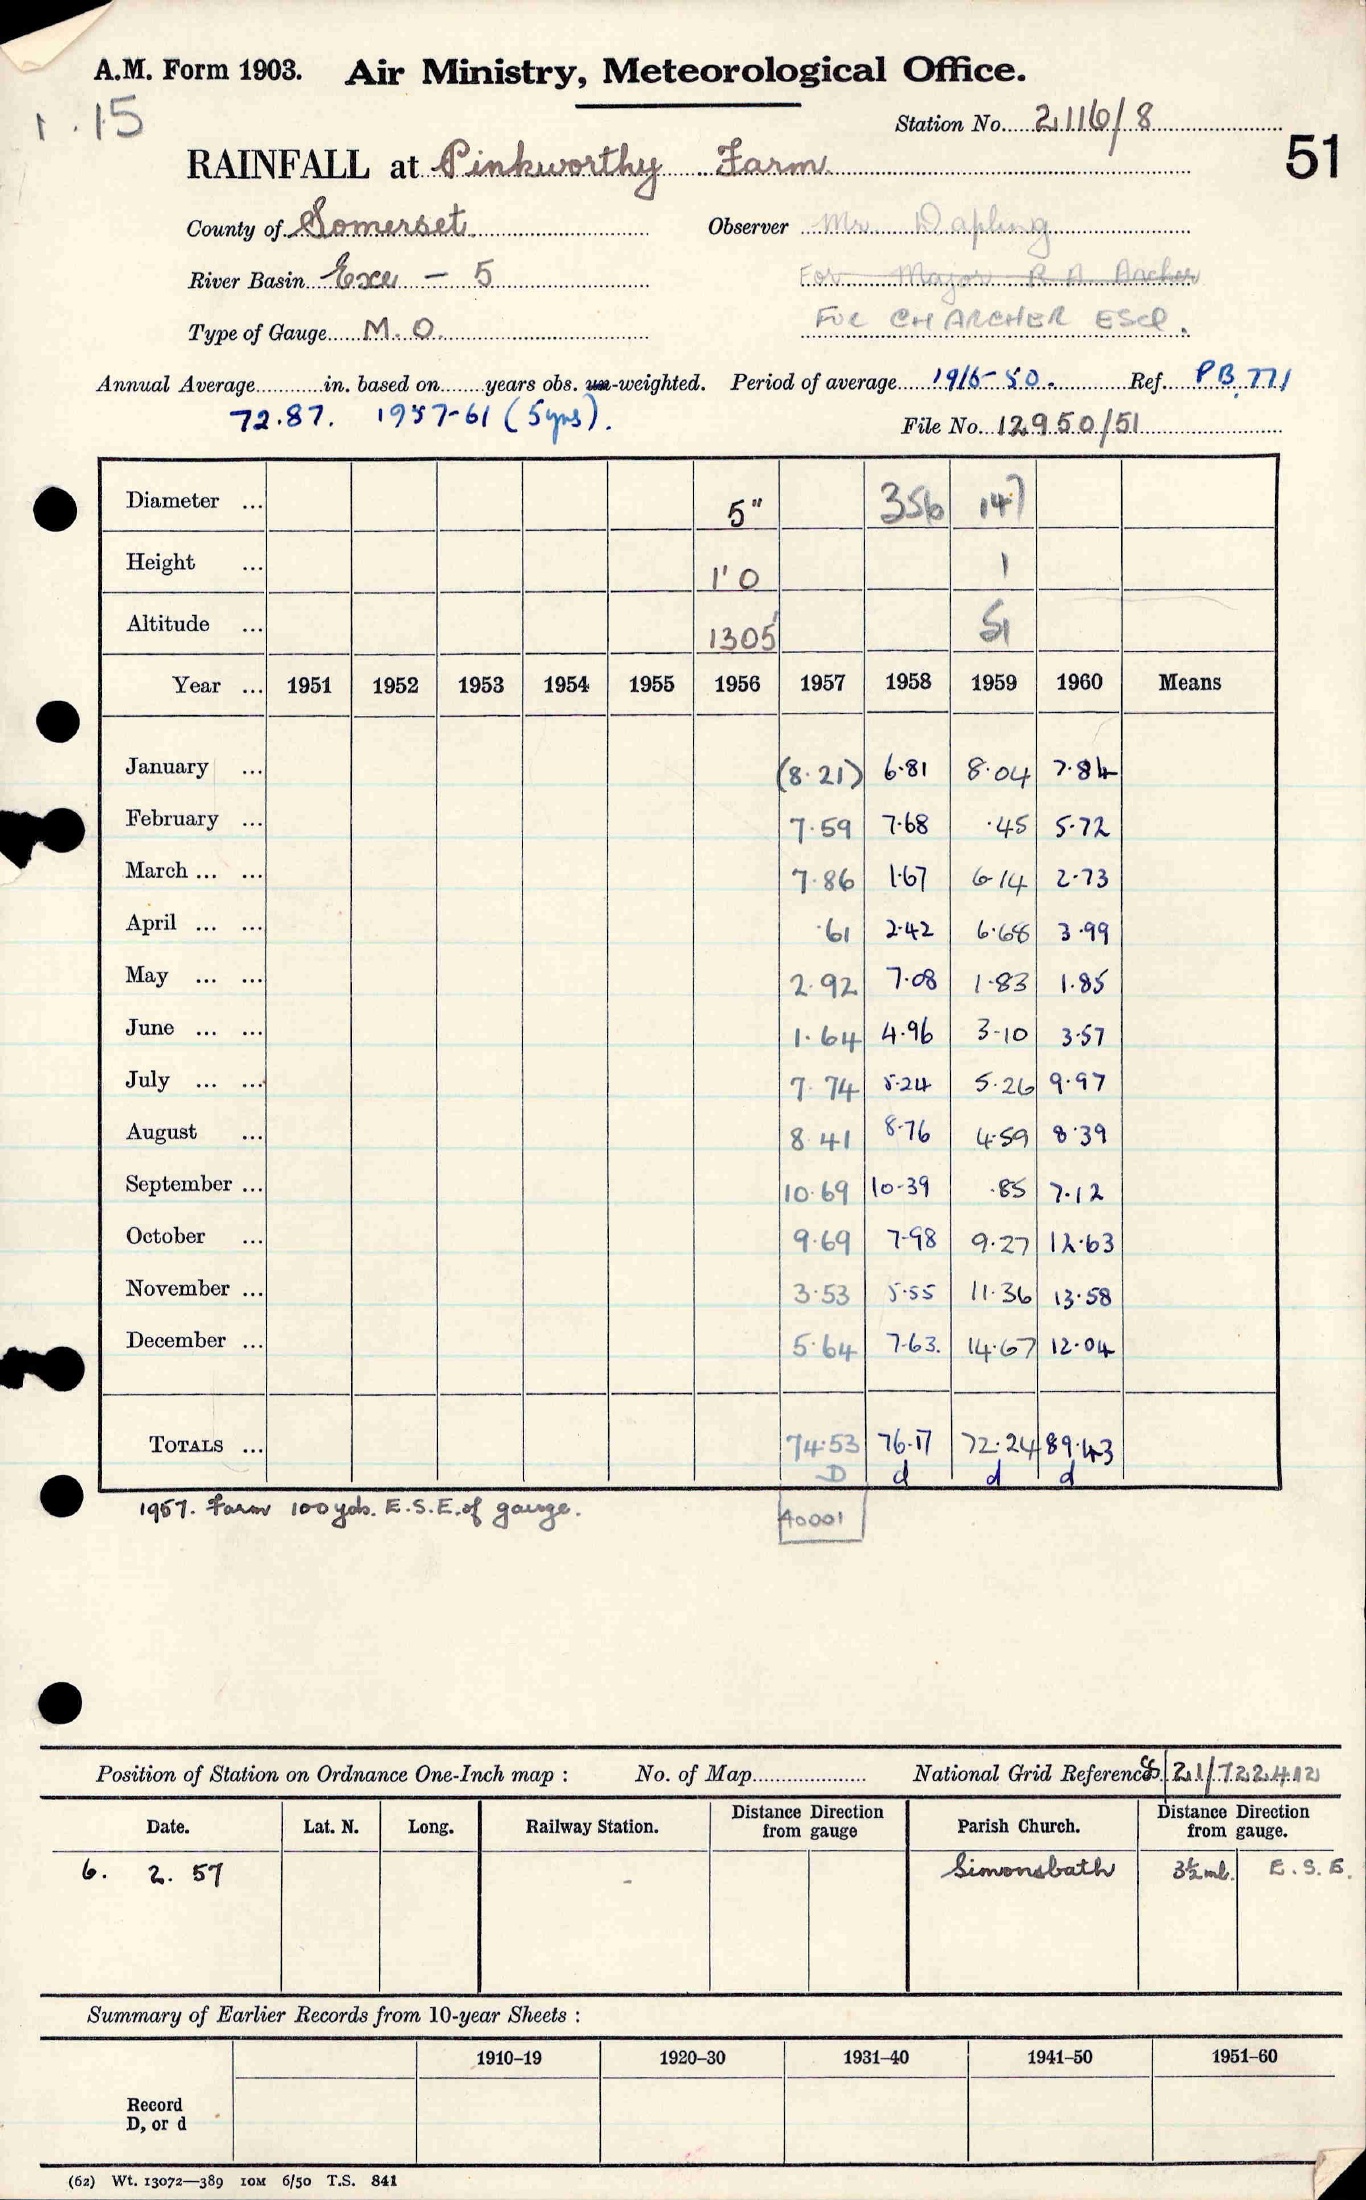 A.M. Form 1903. Air Ministry, Meteorological Office.
1.15
Station No. 2116/8
RAINFALL at Pinkworthy Farm
51
County of Somerset Observer Mr. Dapling
River Basin Exe — 5 For Major R A Archer
Type of Gauge M.O. For CH ARCHER ESQ.
Annual Average in. based on years obs. un-weighted. Period of average 1916-50. Ref. PB 771
72.87. 1957-61 (5yrs).
File No. 12950/51
Diameter ... 5" 356 147
Height ... 1' 0 1
Altitude ... 1305' 51
Year ... 1951 1952 1953 1954 1955 1956 1957 1958 1959 1960 Means
January ... (8.21) 6.81 8.04 7.84
February ... 7.59 7.68 .45 5.72
March ... ... 7.86 1.67 6.14 2.73
April ... ... .61 2.42 6.68 3.99
May ... ... 2.92 7.08 1.83 1.85
June ... ... 1.64 4.96 3.10 3.57
July ... ... 7.74 5.24 5.26 9.97
August ... 8.41 8.76 4.59 8.39
September ... 10.69 10.39 .85 7.12
October ... 9.69 7.98 9.27 12.63
November ... 3.53 5.55 11.36 13.58
December ... 5.64 7.63. 14.67 12.04
TOTALS ... 74.53 76.17 72.24 89.43
D d d d
1957. Farm 100 yds. E.S.E. of gauge.
A0001
Position of Station on Ordnance One-Inch map : No. of Map National Grid Reference SS 21/722412
Date. Lat. N. Long. Railway Station. Distance Direction from gauge Parish Church. Distance Direction from gauge.
6. 2. 57 - Simonsbath 3½ ml. E.S.E.
Summary of Earlier Records from 10-year Sheets :
1910–19 1920–30 1931–40 1941–50 1951–60
Record
D, or d
(62) Wt. 13072—389 10M 6/50 T.S. 841